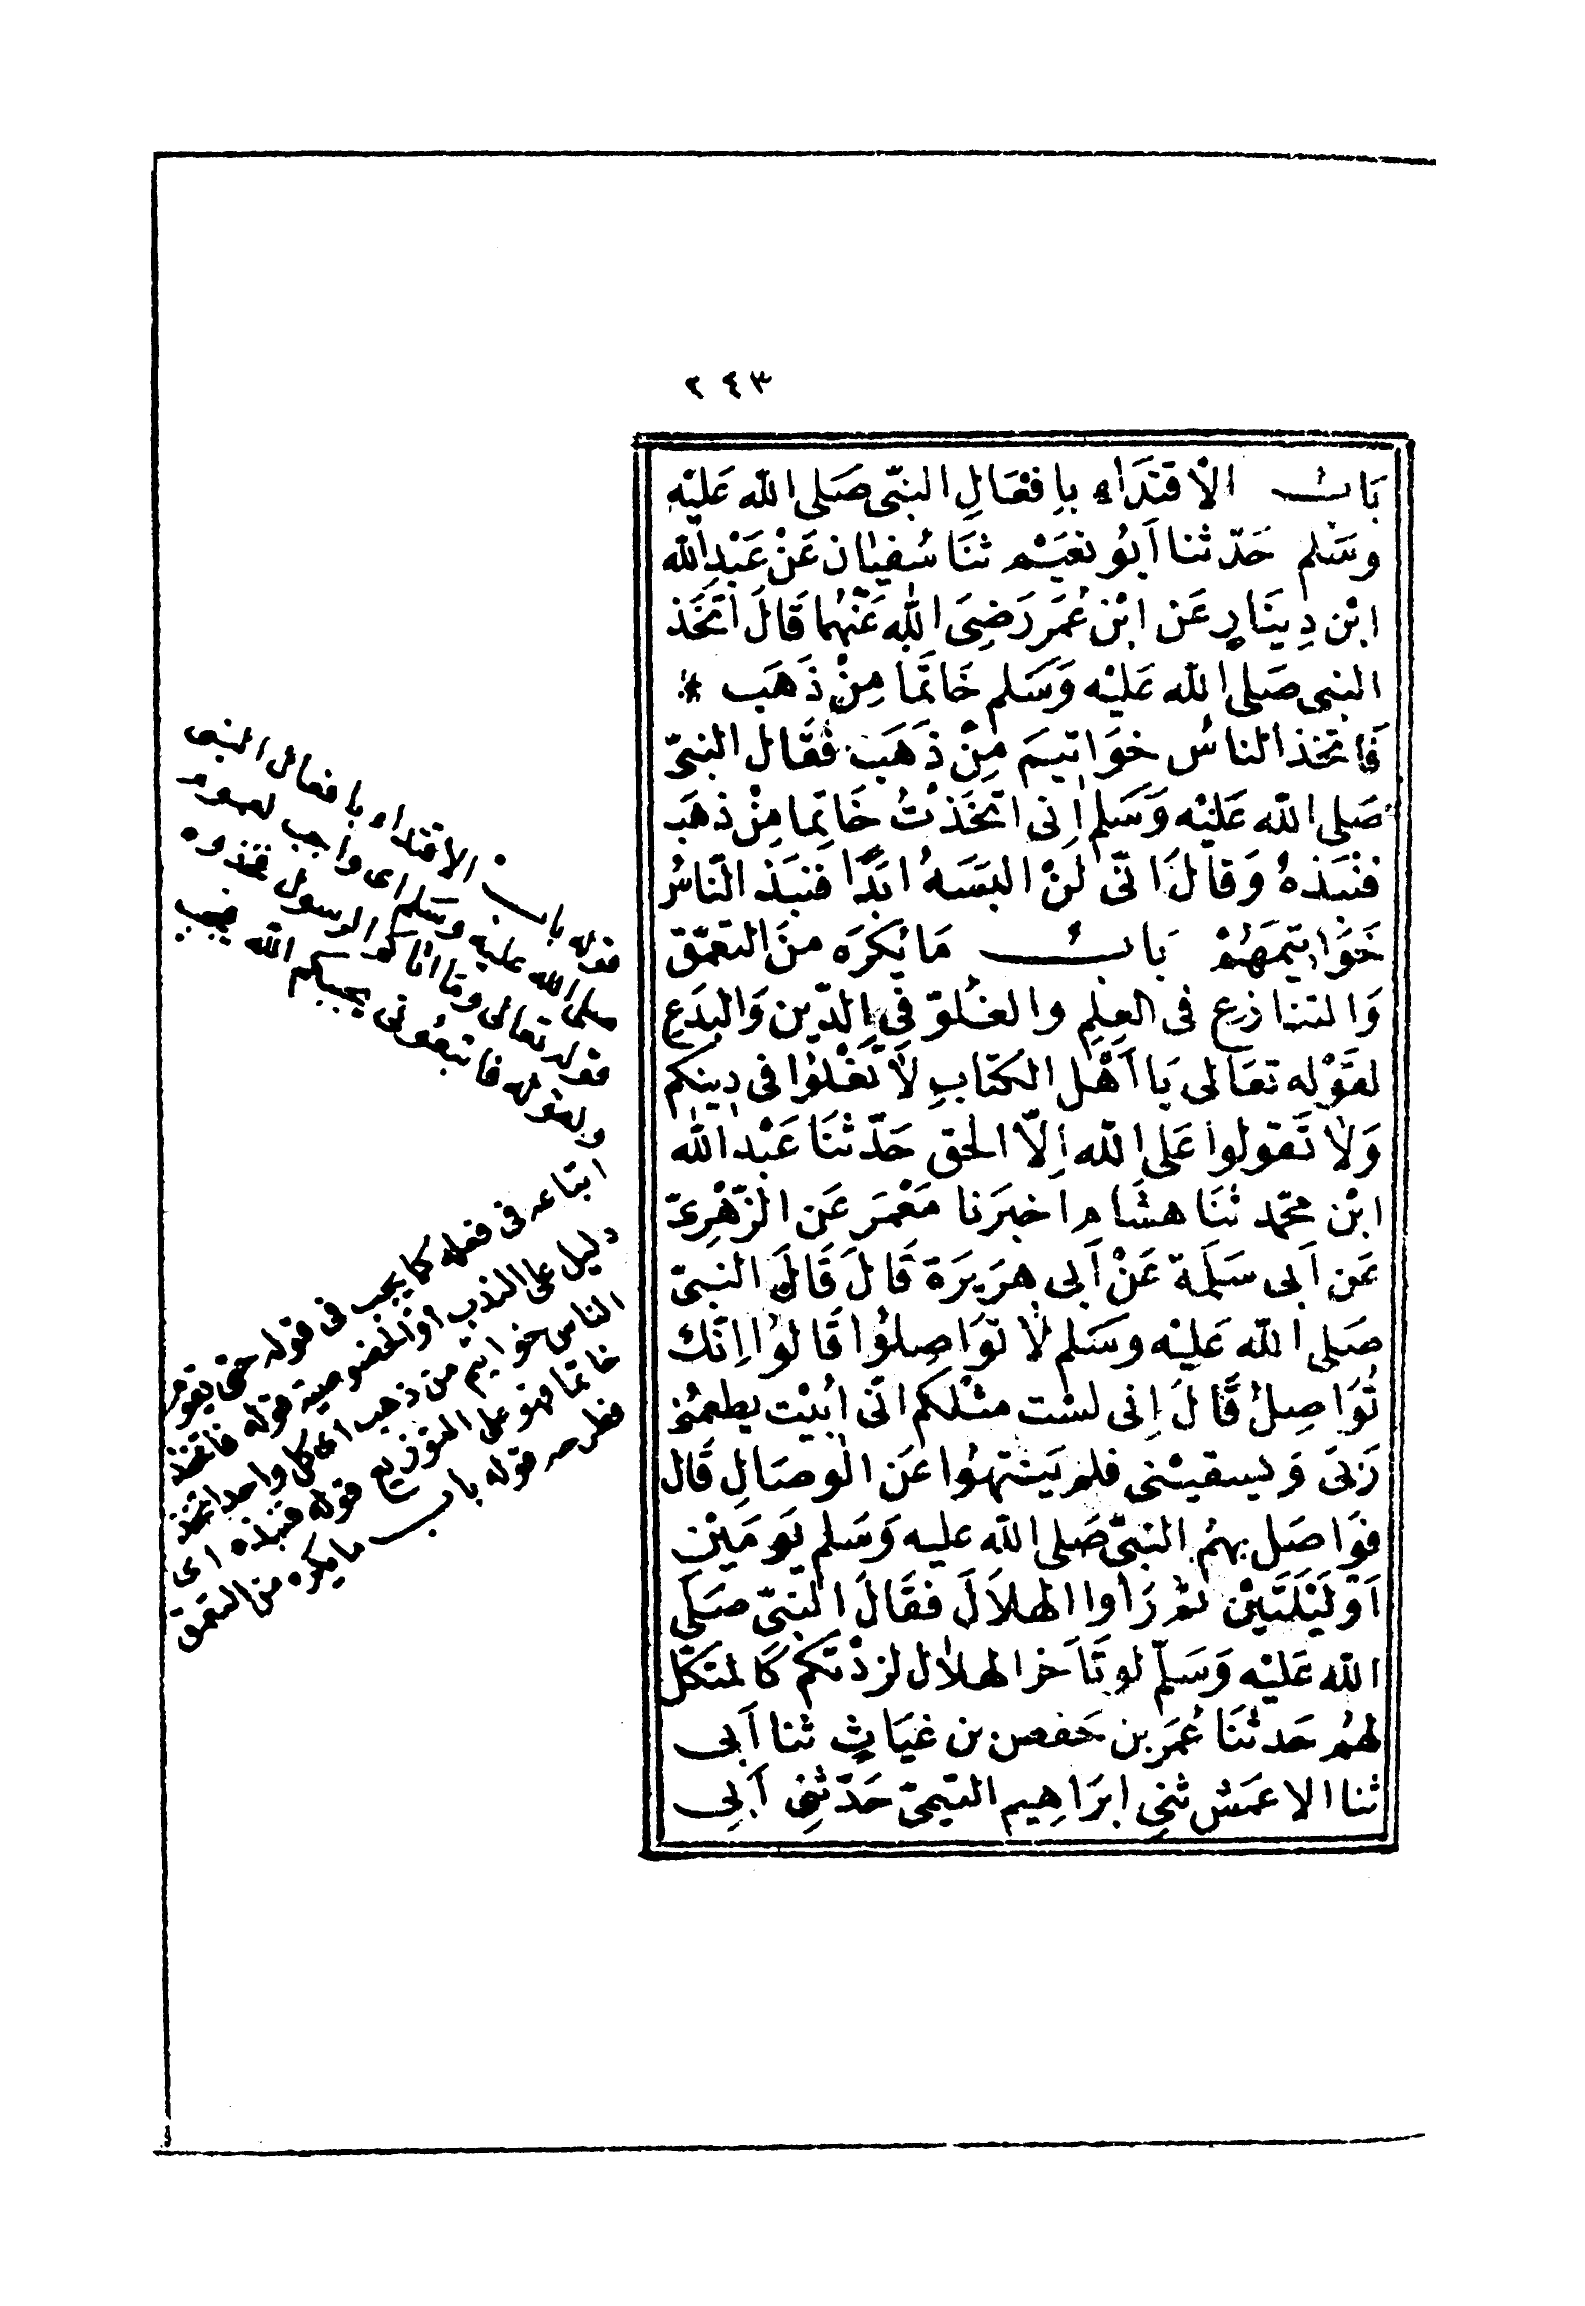 ٢٤٣
بَابُ الْاقتدَاءِ بِافعَالِ النبّى صَلى الله عَليْه
وسَلم حَدّثنا اَبُو نعَيْم ثنَا سُفيان عَنْ عَبْدِ الله
ابْن دِينَارٍ عَن ابْن عُمَر رَضِىَ اللهِ عَنْهُما قَالَ اتخَذ
النبى صَلى الله عَليْه وَسَلم خَاتمًا مِنْ ذَهَب *
فَاتخذ الناسُ خوَاتيمَ مِنْ ذَهَبٍ فقَال النبىّ
صَلى الله عَليْه وَسَلم اِنى اتخَذتُ خَاتِما مِنْ ذهَب
فنبَذهُ وَقالَ اَنّى لنْ البَسَهُ ابَدًا فنبَذ النّاسُ
خَوَاتيمَهُمْ بَابُ مَا يُكرَه منَ التعمّق
وَالتنازع فى العِلِم والغُلوّ فى الدّين وَالبدَع
لقَوْله تعَالى يَا اَهْل الكتابِ لَا تَغْلوُا فى دِينِكم
وَلا تَقولوا عَلى الله اِلّا الحق حَدّثنَا عَبْد الله
ابْن محمّد ثنَا هشَام اخبرَنا مَعْمَر عَن الزّهْرِىّ
عَن اَبى سَلَمة عَنْ اَبى هرَيرَة قَالَ قَالَ النبىّ
صَلى الله عَليْه وسَلم لَا توَاصِلوُا قَالوُا اِنّك
تُوَاصِلُ قَالَ اِنى لسْت مثلكم انّى اَبيْت يطعمُنى
رَبىّ وَيسقيْنى فلم يَنتهوُا عَن الوصَالِ قَال
فوَاصَل بهمُ النبىّ صَلى الله عليه وَسَلم يَومَيْن
اَوْ ليْلَتَيْن ثم رَاوا الهلاَلَ فقَالَ النبىّ صَلى
الله عَليْه وَسَلّم لو تَاَخر الهلال لزدْتكم كَالمنكّل
لهُمْ حَدثنَا عُمَر بن حَفص بن غيَاثٍ ثنا اَبى
ثنا الاعمَش ثنِى ابرَاهِيم التيمىّ حَدّثنِى اَبِى
قوله باب الاقتداء بافعال النبى
صلى الله عليه وسلم اى واجب لعموم
قوله تعالى وما اتاكم الرسول فخذوه
ولقوله فاتبعُونى يحببكم الله فيجب
اتباعه فى فعله كما يجب فى قوله حتى يقوم
دليل على الندب او الخصوصية قوله فاتخذ
الناس خواتيم من ذهب اى كل واحد اتخذ
خاتما فهو على التوزيع قوله فنبذه اى
فطرحه قوله باب ما يكره من التعمق